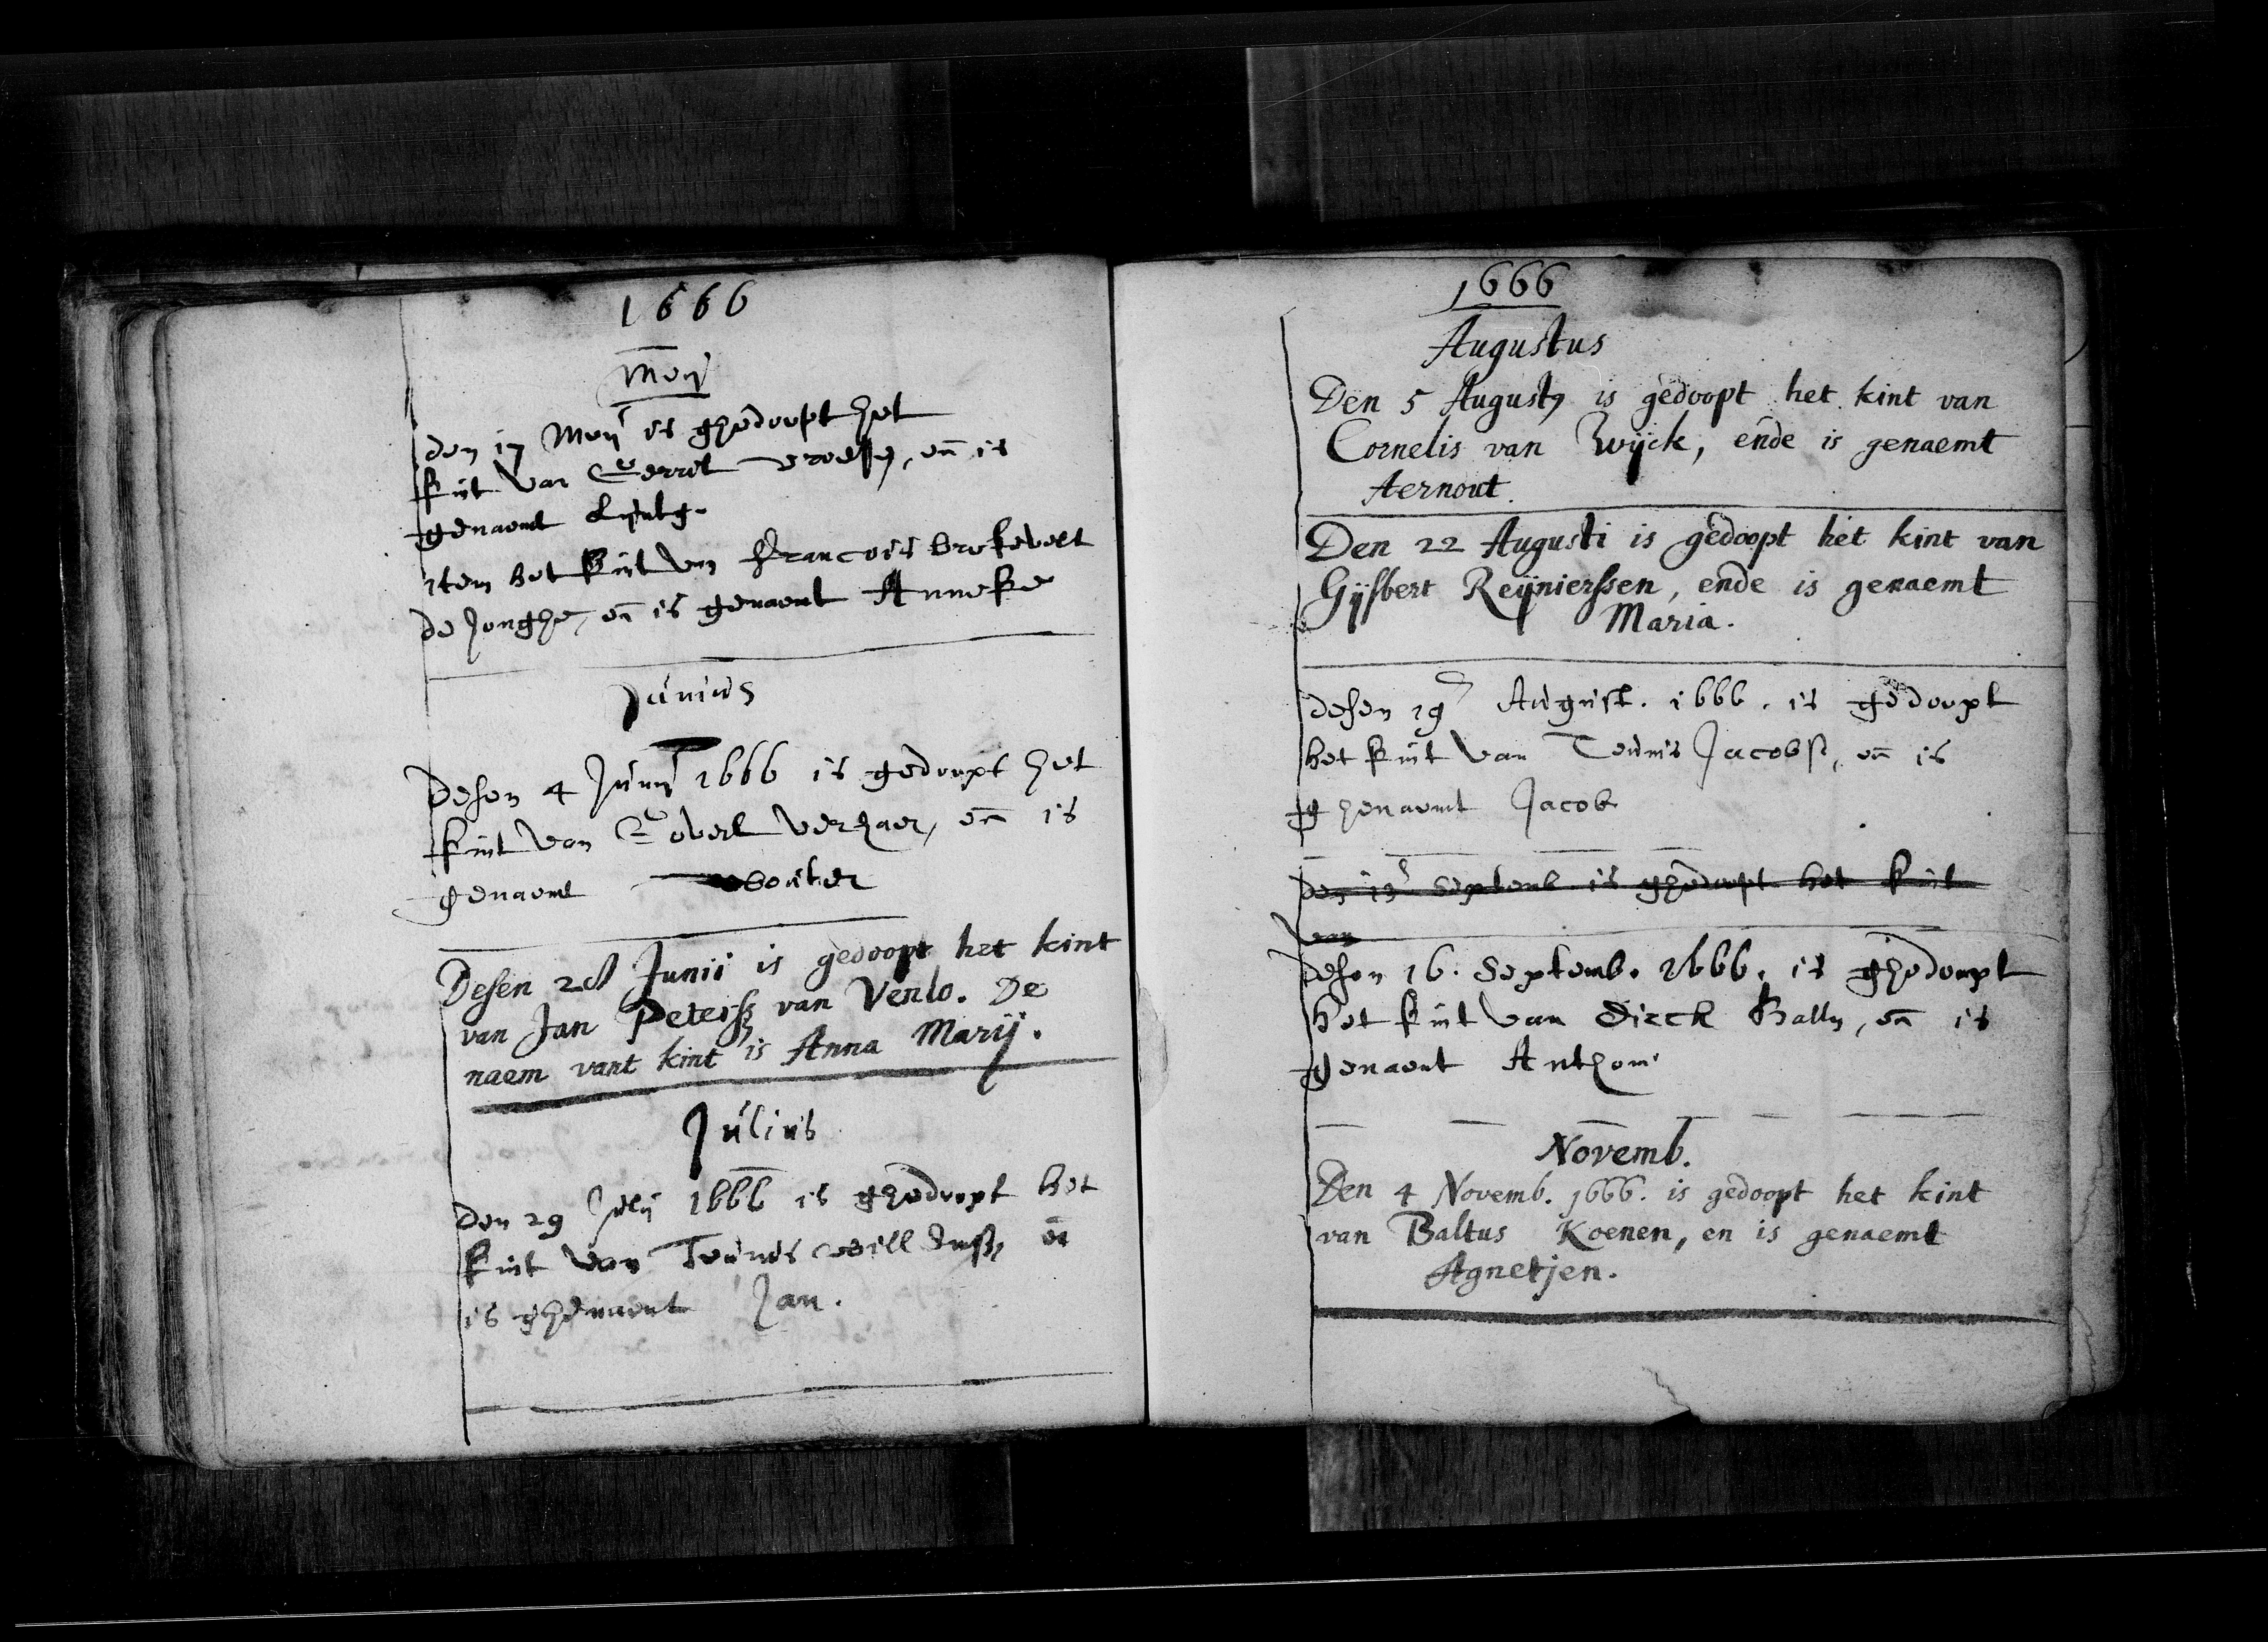 1666
Meij
den 17 Meij is ghedoopt het
kint van Gerrit, en̄ is
genaemt
item het kint van Francois brokevelt
de Jonghe, en̄ is genaemt Anneke
Junius
Desen 4 Junij 1666 is gedoopt het
kint van Govert verhaer, en̄ is
genaemt wouter
Desen Junii is gedoopt het kint
van Jan Peterss van Venlo. De
naem vant kint is Anna Marij.
Julius
den 29 Julij 1666 is ghedoopt het
kint van Teunis, en̄
is ghenaemt Jan.
1666
Augustus
Den 5 Augusty is gedoopt het kint van
Cornelis van Zwijck, ende is genaemt
Aernout.
Den 22 Augusti is gedoopt het kint van
Gijsbert Reijnierssen, ende is genaemt
Maria.
desen 19 August. 1666. is gedoopt
het kint van Teunis Jacobss, en̄ is
ghenaemt Jacob
den 13 Septemb is ghedoopt het kint
van
desen 16. Septemb. 1666. is ghedoopt
het kint van Dirck, en̄ is
genaemt Anthoni
Novemb.
Den 4 Novemb. 1666. is gedoopt het kint
van Baltus Koenen, en is genaemt
Agnetjen.